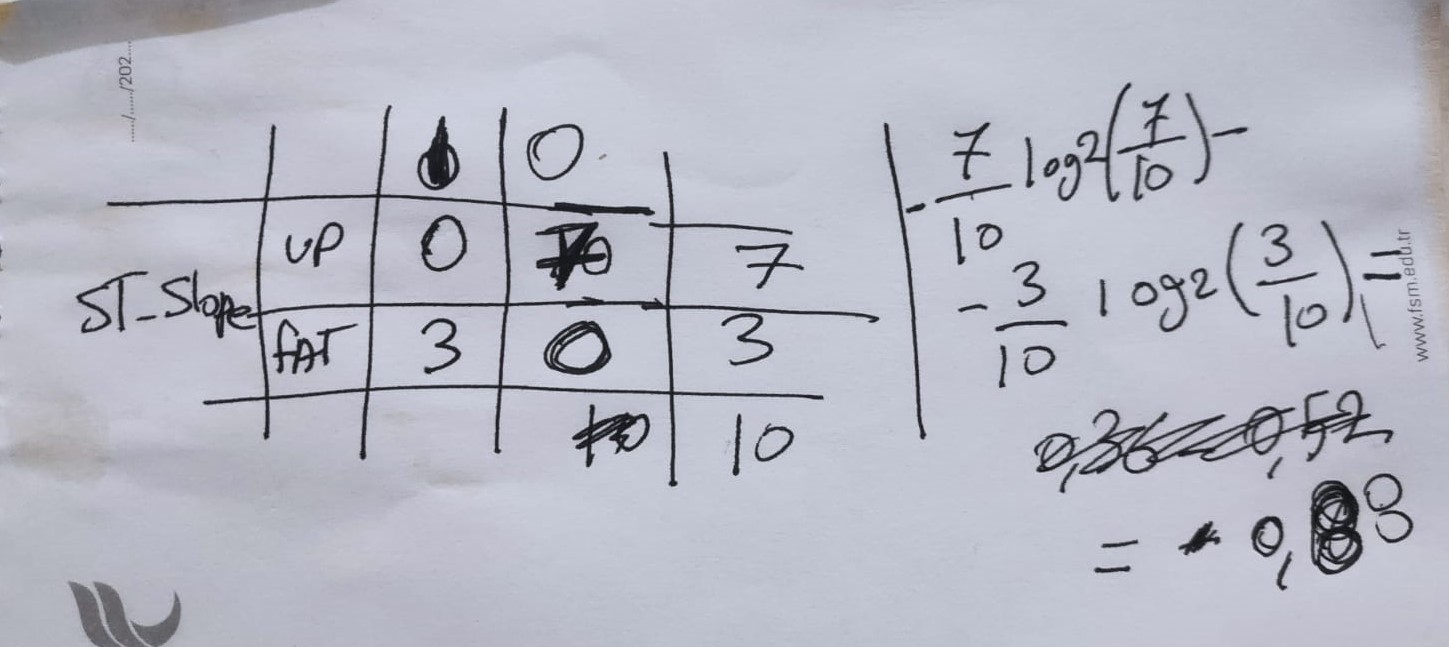 ....../....../202...
0
UP 0 7
ST-Slope
fAT 3 0 3
10
- 7/10 log2(7/10) -
- 3/10 log2(3/10) =
0,36 0,52
= 0,88
www.fsm.edu.tr